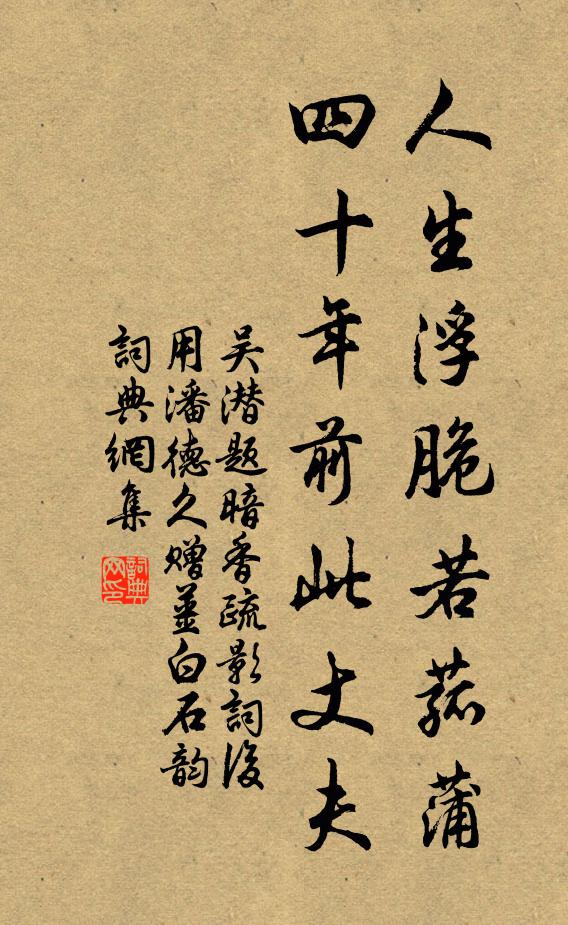 人生浮脆若菰蒲
四十年前此丈夫
吴潜题暗香疏影詞後
用潘德久赠薑白石韵
詞典網集
詞典网印